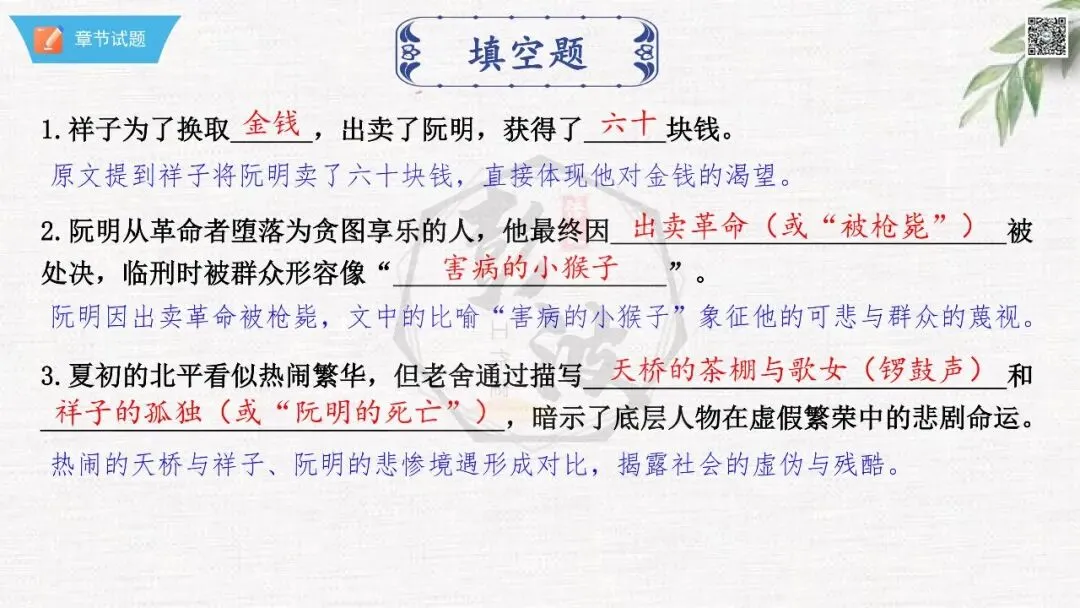 章节试题
填空题
1.祥子为了换取 金钱 ，出卖了阮明，获得了 六十 块钱。
原文提到祥子将阮明卖了六十块钱，直接体现他对金钱的渴望。
2.阮明从革命者堕落为贪图享乐的人，他最终因 出卖革命（或“被枪毙”） 被
处决，临刑时被群众形容像“ 害病的小猴子 ”。
阮明因出卖革命被枪毙，文中的比喻“害病的小猴子”象征他的可悲与群众的蔑视。
3.夏初的北平看似热闹繁华，但老舍通过描写 天桥的茶棚与歌女（锣鼓声） 和
祥子的孤独（或“阮明的死亡”） ，暗示了底层人物在虚假繁荣中的悲剧命运。
热闹的天桥与祥子、阮明的悲惨境遇形成对比，揭露社会的虚伪与残酷。